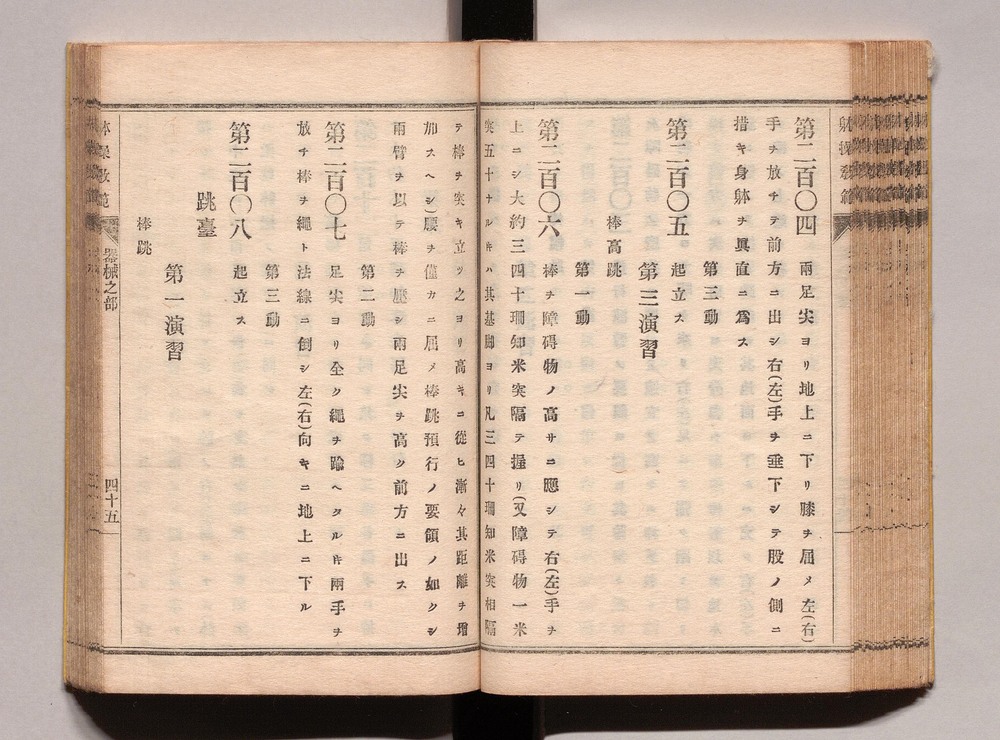 躰操敎範
第二百〇四　兩足尖ヨリ地上ニ下リ膝ヲ屈メ左(右)
手ヲ放チテ前方ニ出シ右(左)手ヲ垂下シテ股ノ側ニ
措キ身躰ヲ眞直ニ爲ス
第三動
第二百〇五　起立ス
第三演習
棒高跳
第一動
第二百〇六　棒ヲ障碍物ノ高サニ應シテ右(左)手ヲ
上ニシ大約三四十珊知米突隔テ握リ(又障碍物一米
突五十ナルキハ其基脚ヨリ凡三四十珊知米突相隔
テ棒ヲ突キ立ツ之ヨリ高キニ從ヒ漸々其距離ヲ增
加スヘシ)腰ヲ僅カニ屈メ棒跳預行ノ要領ノ如クシ
兩臂ヲ以テ棒ヲ壓シ兩足尖ヲ高ク前方ニ出ス
第二動
第二百〇七　足尖ヨリ全ク繩ヲ踰ヘタルキ兩手ヲ
放チ棒ヲ繩ト法線ニ倒シ左(右)向キニ地上ニ下ル
第三動
第二百〇八　起立ス
跳臺
第一演習
棒跳
体操教範
器械之部
四十五